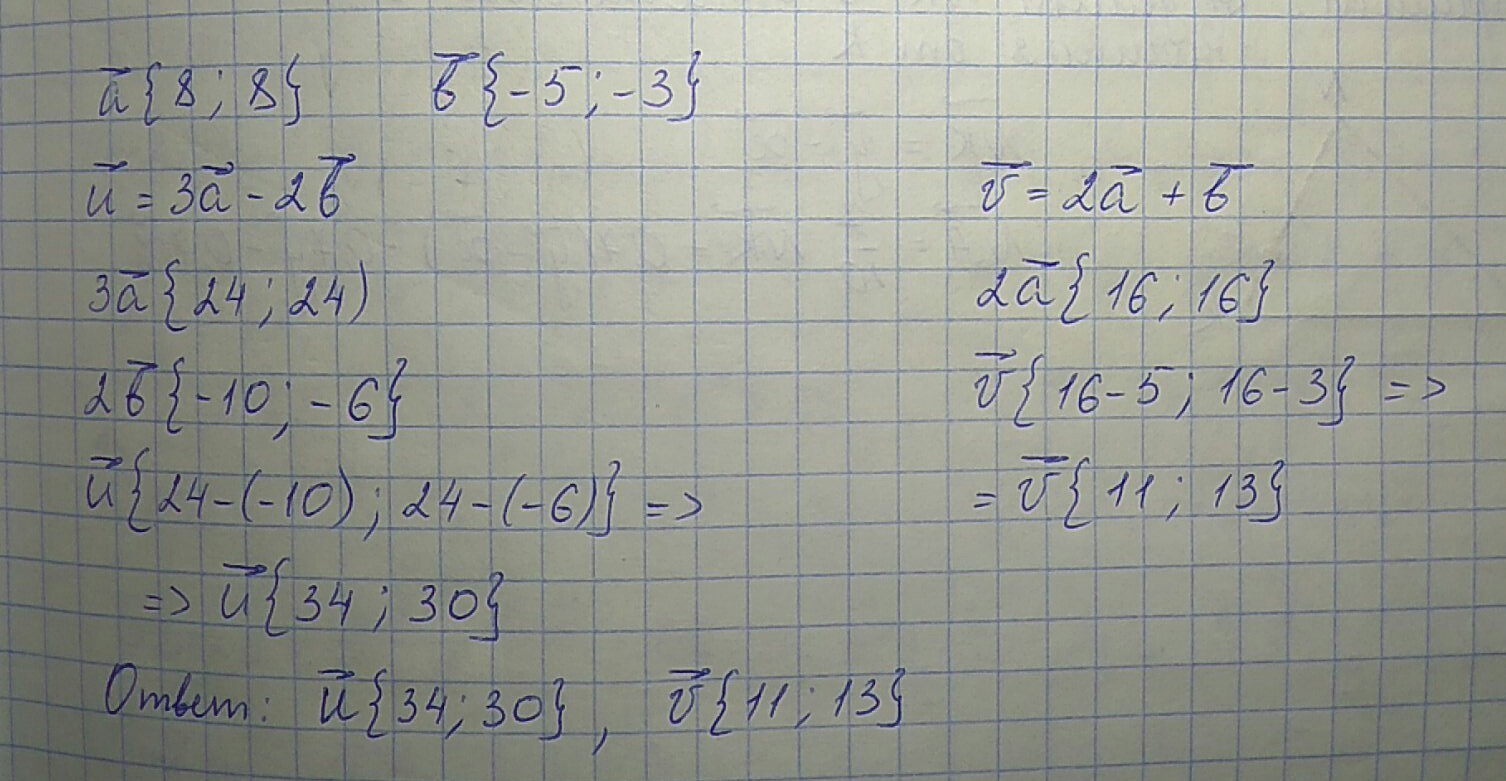 a⃗{8; 8} b⃗{-5; -3}
u⃗ = 3a⃗ - 2b⃗
3a⃗{24; 24)
2b⃗{-10; -6}
u⃗{24-(-10); 24-(-6)} =>
=> u⃗{34; 30}
v⃗ = 2a⃗ + b⃗
2a⃗{16; 16}
v⃗{16-5; 16-3} =>
= v⃗{11; 13}
Ответ: u⃗{34; 30}, v⃗{11; 13}